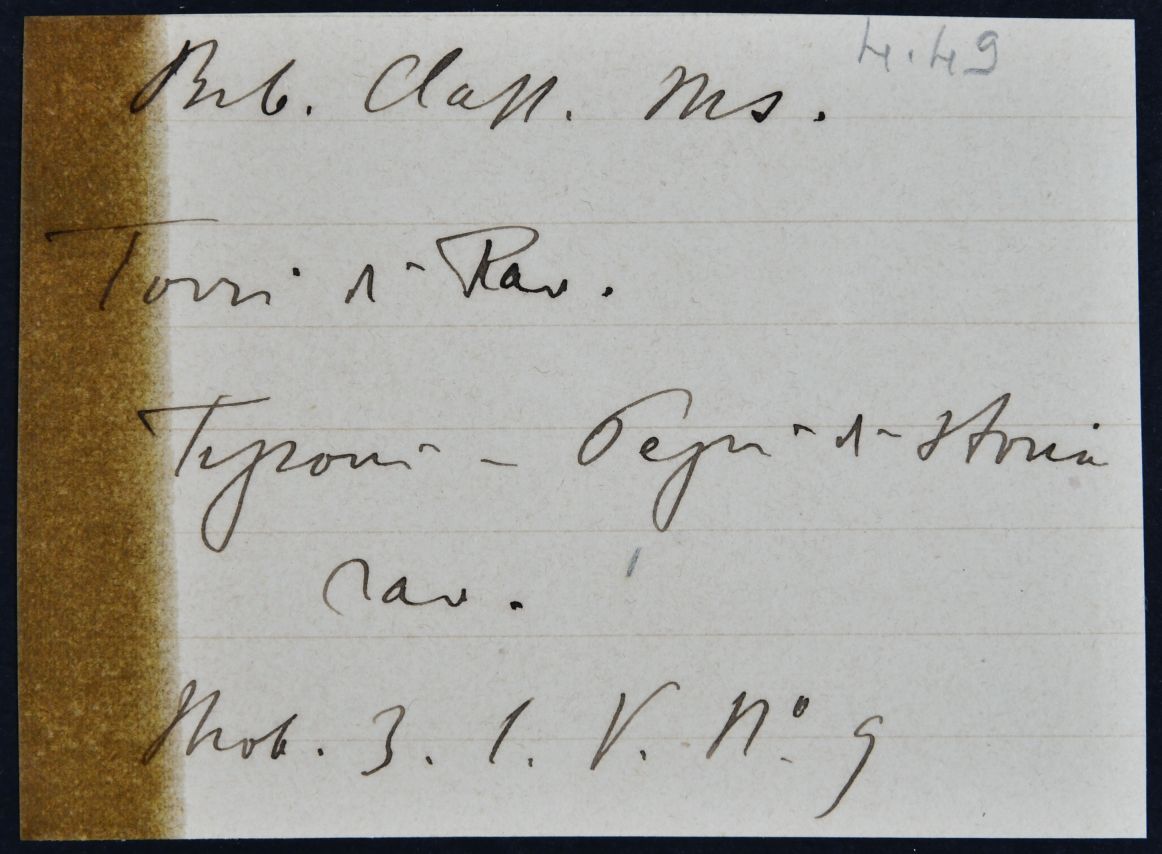 4.49
Bib. Class. Ms.
Torri di Rav.
Tizzoni - Pezzi di Storia
rav.
Mob. 3. 1. V. N.º 9